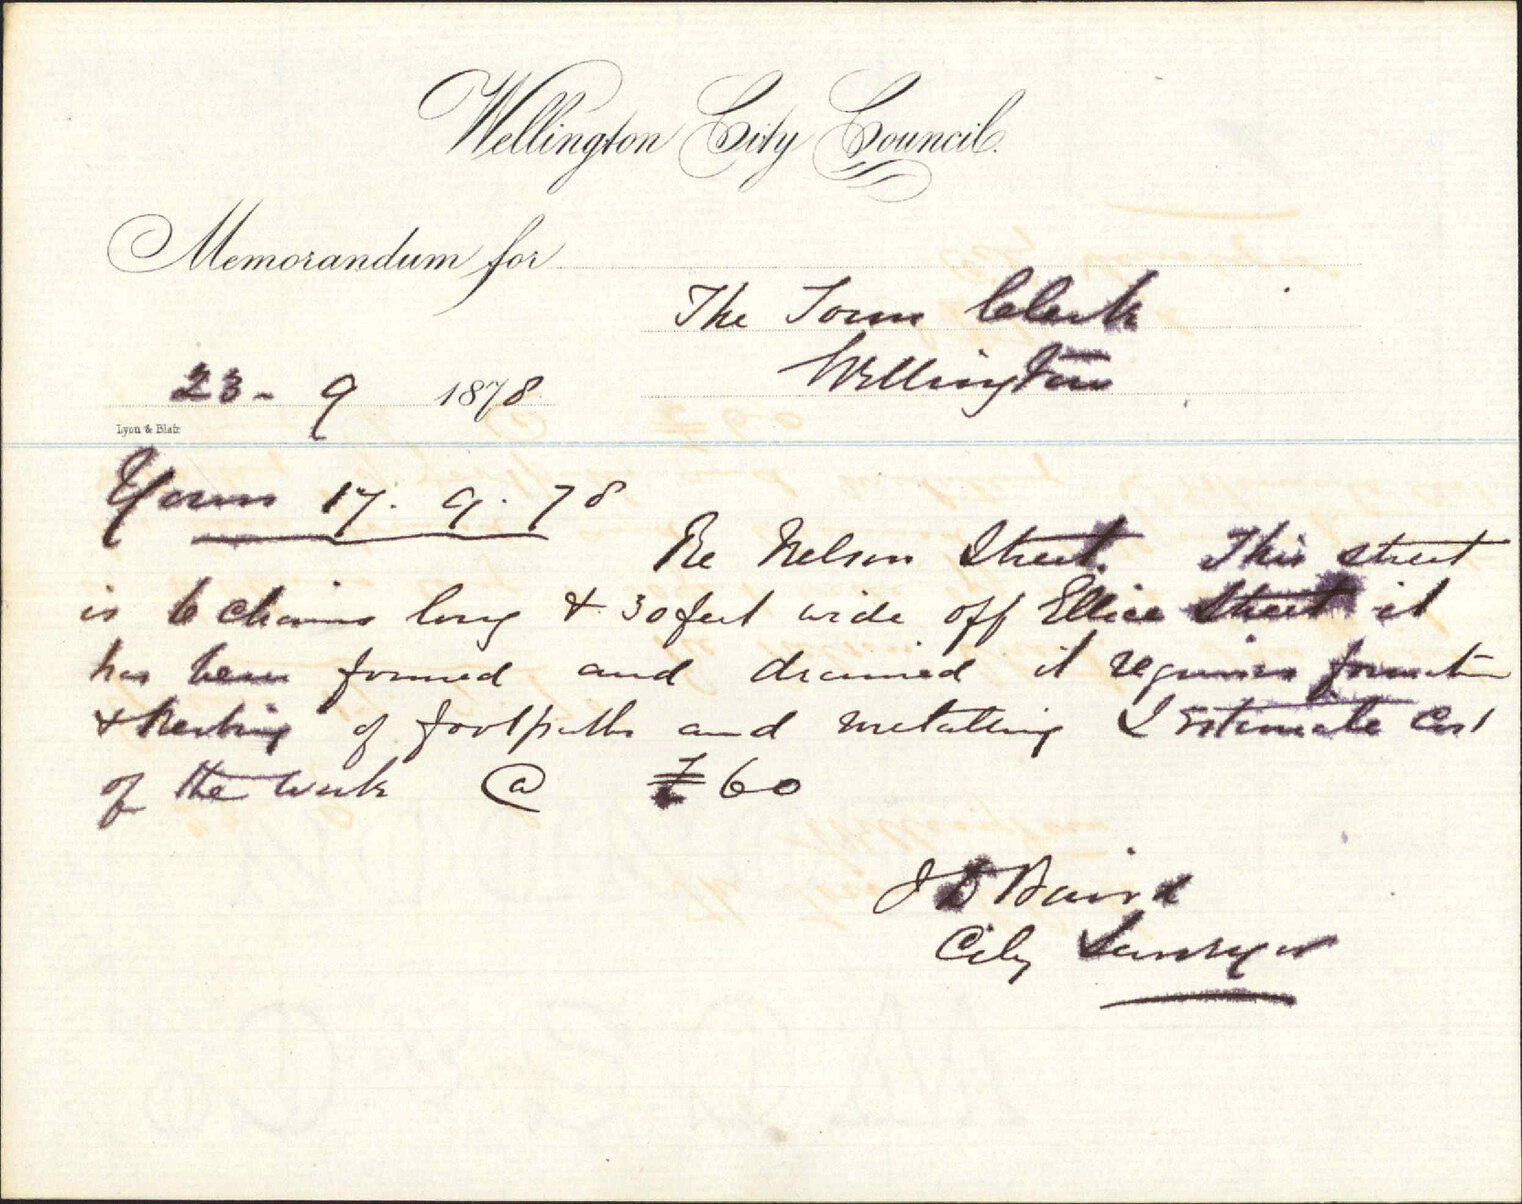 Wellington City Council.
Memorandum for
The Town Clerk
Wellington
23 - 9 1878
Lyon & Blair
Yours 17. 9. 78
Re Nelson Street. This street
is 6 chains long & 30 feet wide off Ellice Street it
has been formed and drained it requires formation
& Kerbing of footpaths and metalling I Estimate Cost
of the work @ £60
J D Baird
City Surveyor